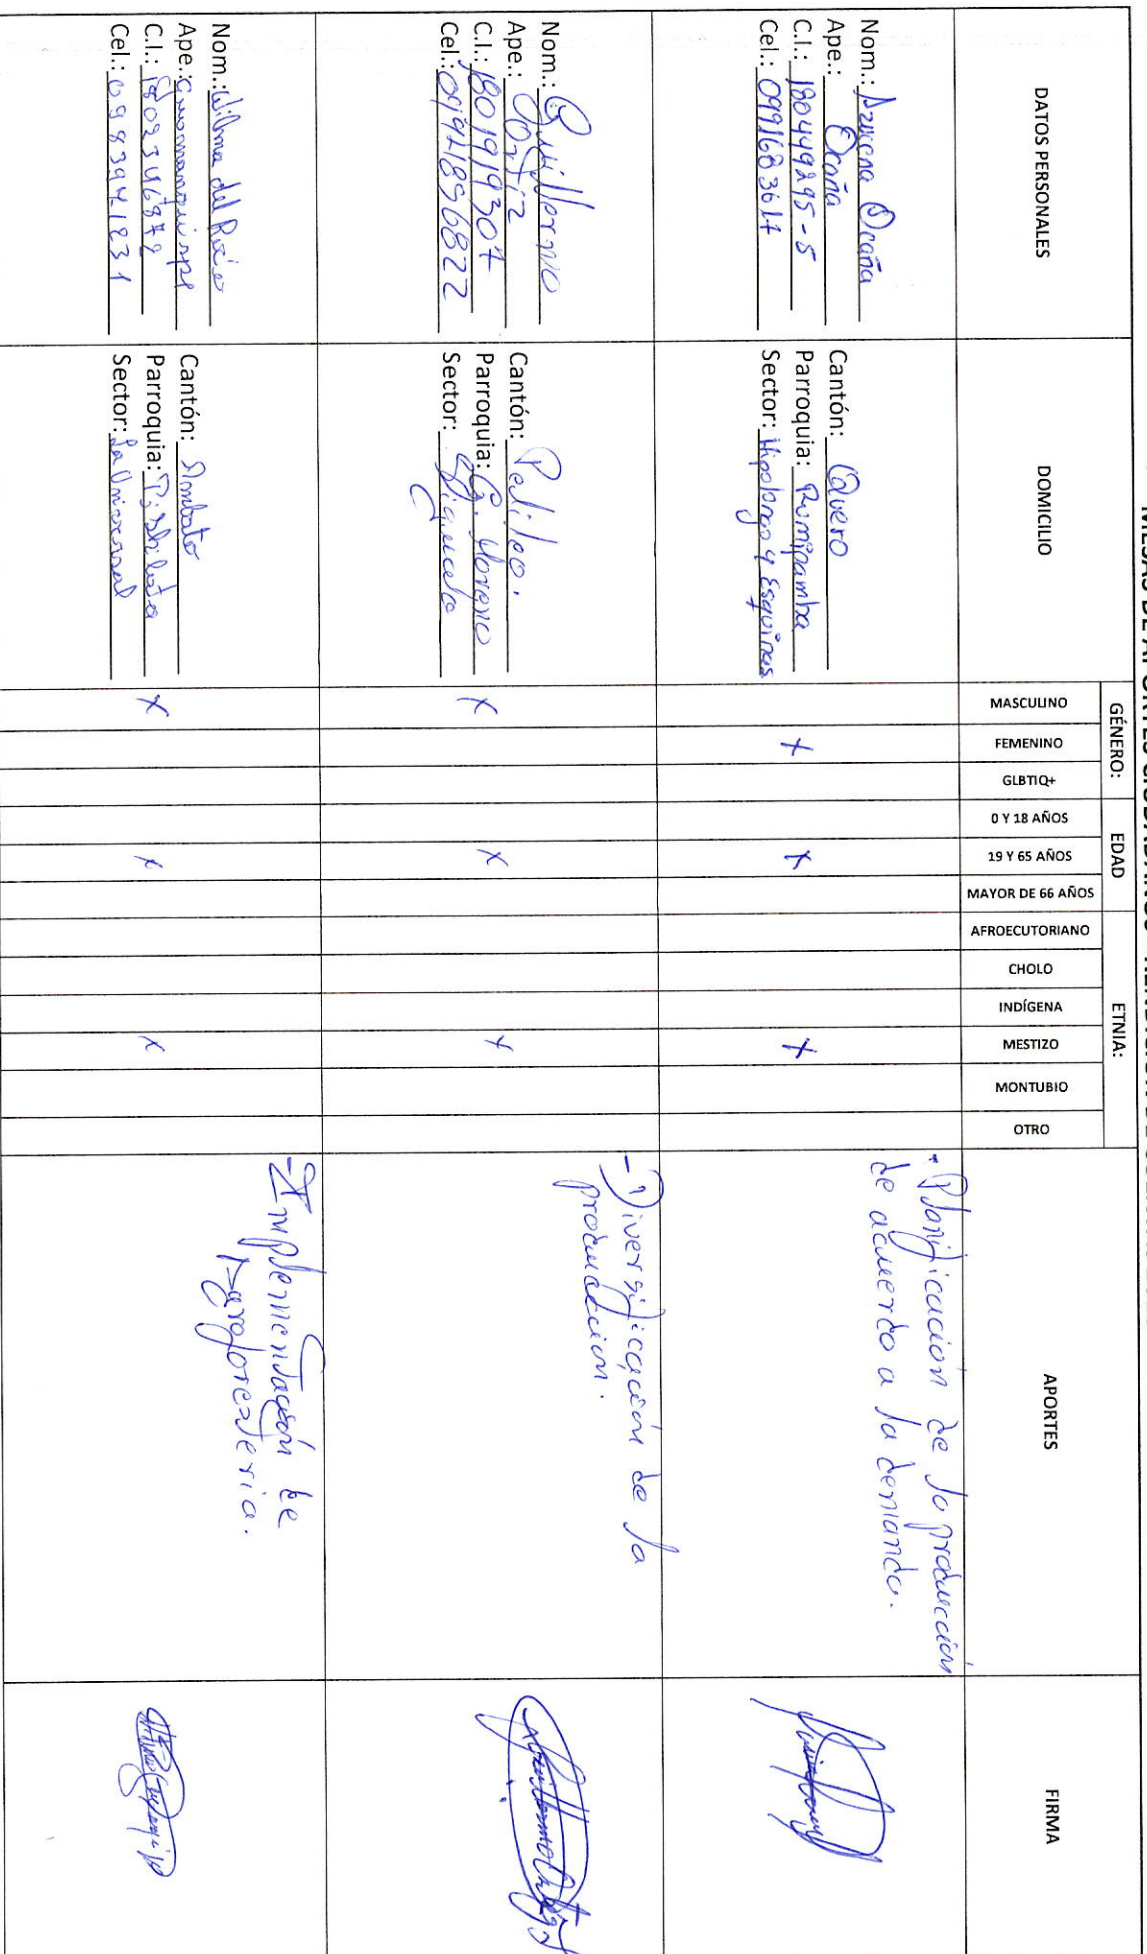 DATOS PERSONALES
DOMICILIO
GÉNERO:
EDAD
ETNIA:
APORTES
FIRMA
MASCULINO
FEMENINO
GLBTIQ+
0 Y 18 AÑOS
19 Y 65 AÑOS
MAYOR DE 66 AÑOS
AFROECUTORIANO
CHOLO
INDÍGENA
MESTIZO
MONTUBIO
OTRO
Nom.: Azucena Ocaña
Ape.: Ocaña
C.I.: 180449295-5
Cel.: 0991683617
Cantón: Quero
Parroquia: Rumipamba
Sector: Hipolongo y Esquinas
X
X
X
- Planificación de la producción
de acuerdo a la demanda.
Nom.: Guillermo
Ape.: Ortiz
C.I.: 1801919307
Cel.:
Cantón: Pelileo.
Parroquia: G. Moreno
Sector:
X
X
X
- Diversificación de la
producción.
Nom.: Wilma del Rocío
Ape.: Guamanquispe
C.I.: 1802346872
Cel.: 0983941231
Cantón: Ambato
Parroquia: Pishilata
Sector: La Universal
X
X
X
- Implementación de
Agroforesteria.